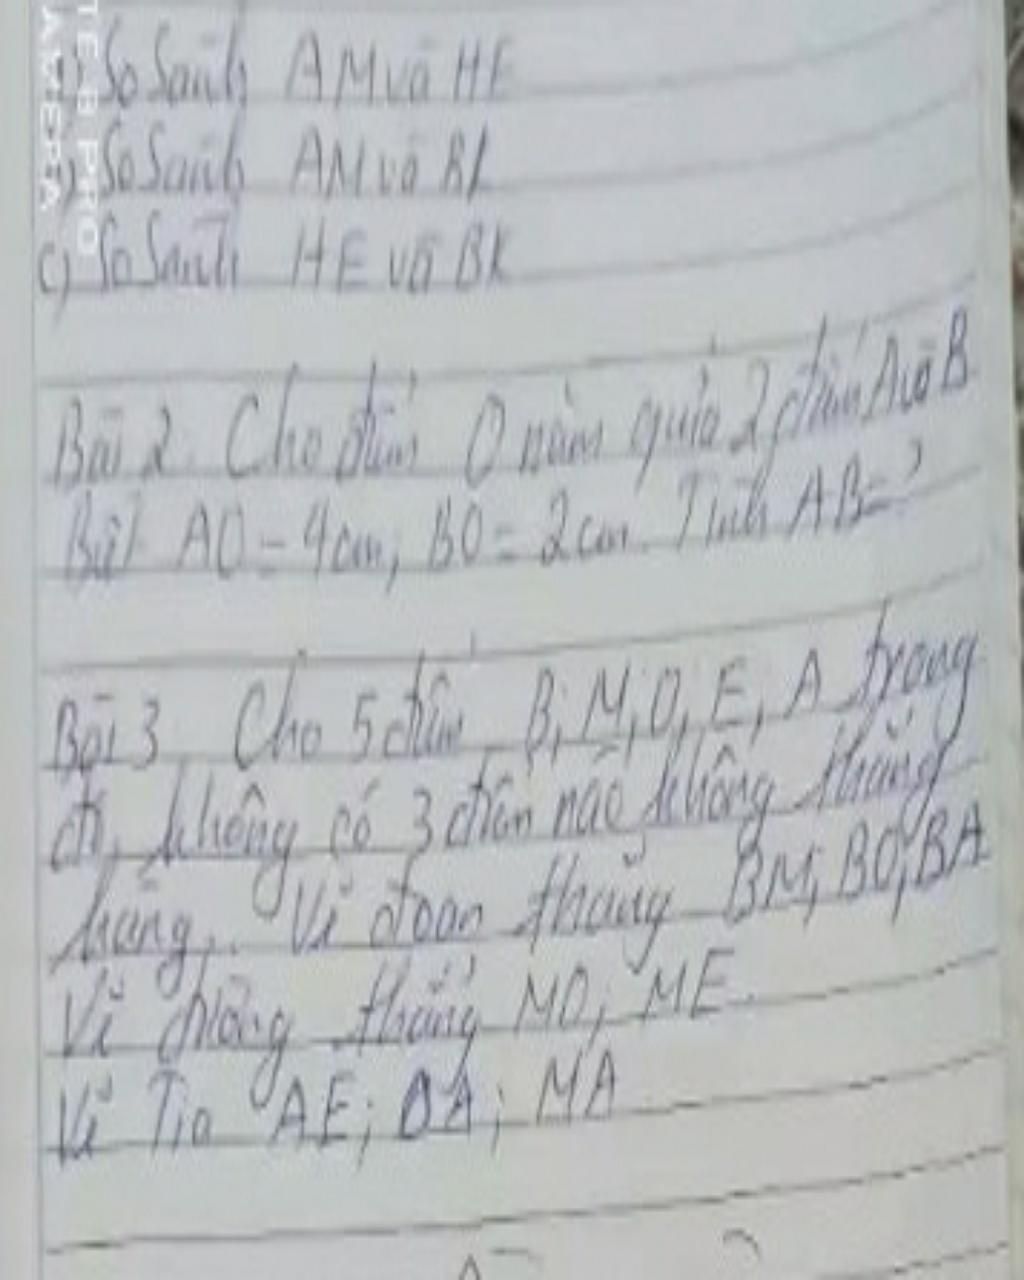 TE B PRO
AWEPA
So Sánh AM và HE
b) So Sánh AM và BK
c) So Sánh HE và BK
Bài 2. Cho điểm O nằm giữa 2 điểm A và B
Biết AO = 4cm, BO = 2cm. Tính AB = ?
Bài 3 Cho 5 điểm B, M, O, E, A trong
đó, không có 3 điểm nào không thẳng
hàng. Vẽ đoạn thẳng BM; BO; BA
Vẽ đường thẳng MO; ME.
Vẽ Tia AE; OA; MA